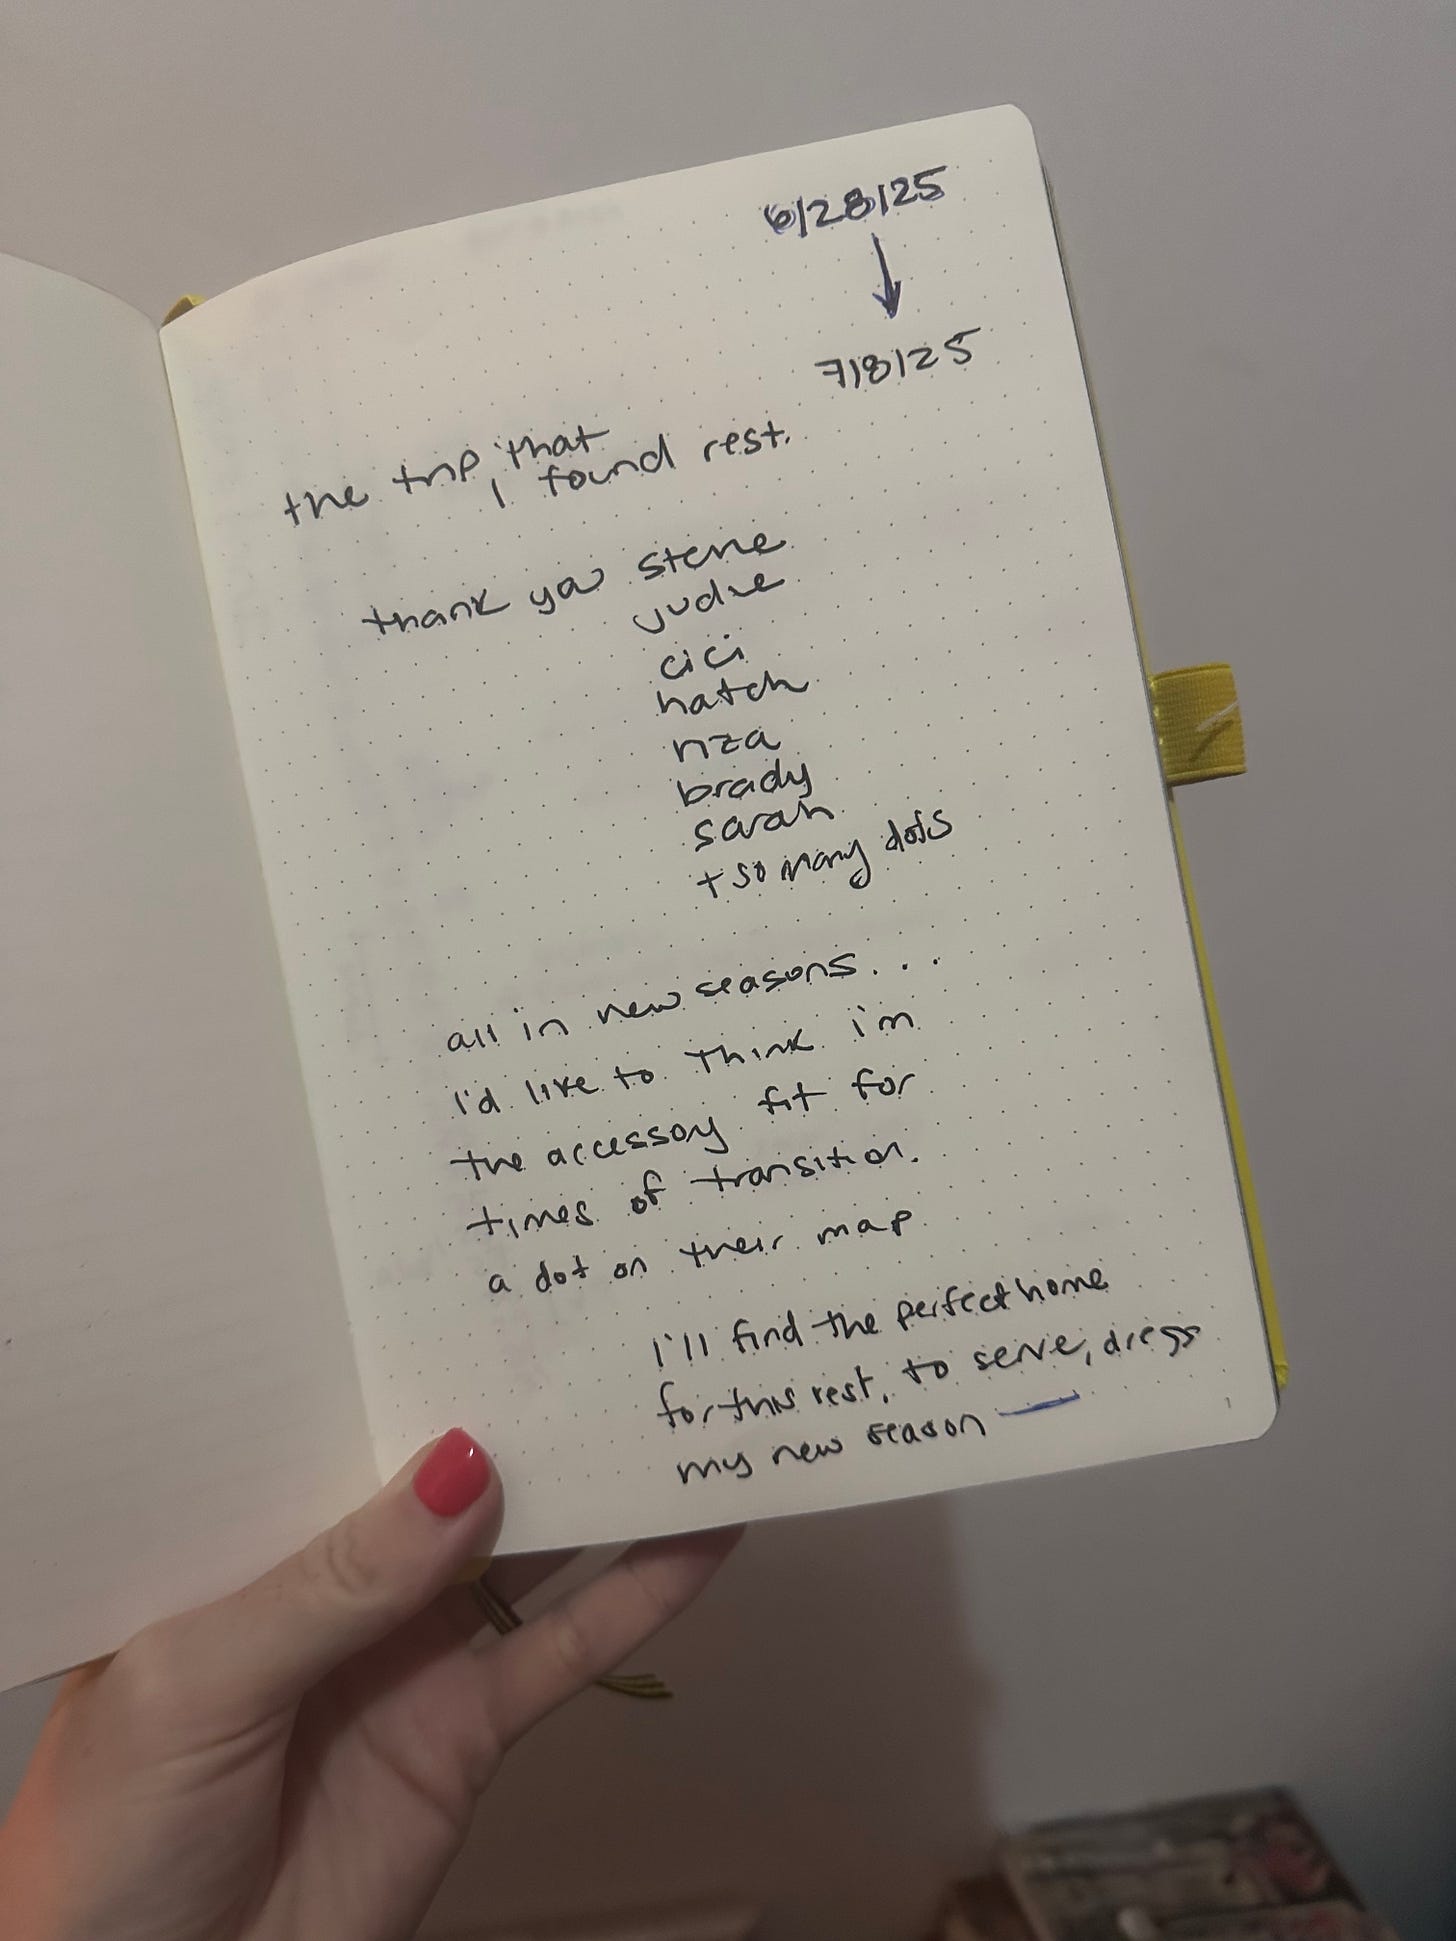 6/28/25
7/8/25
the trip that
I found rest.
thank you stevie
judie
cici
hatch
riza
brady
sarah
+ so many dots
all in new seasons...
I'd like to think i'm
the accessory fit for
times of transition.
a dot on their map
I'll find the perfect home
for this rest, to serve, dress
my new season —
1